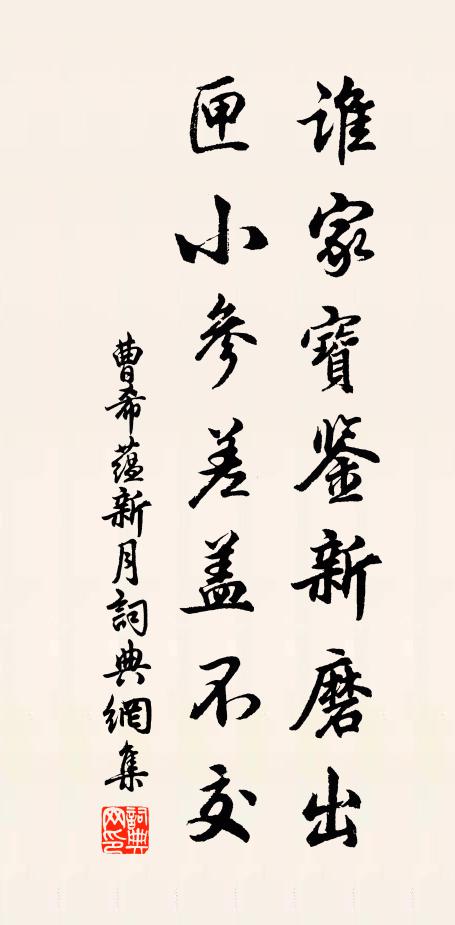 誰家寶鉴新磨出
匣小參差盖不交
曹希蕴新月詞典網集
詞典网印